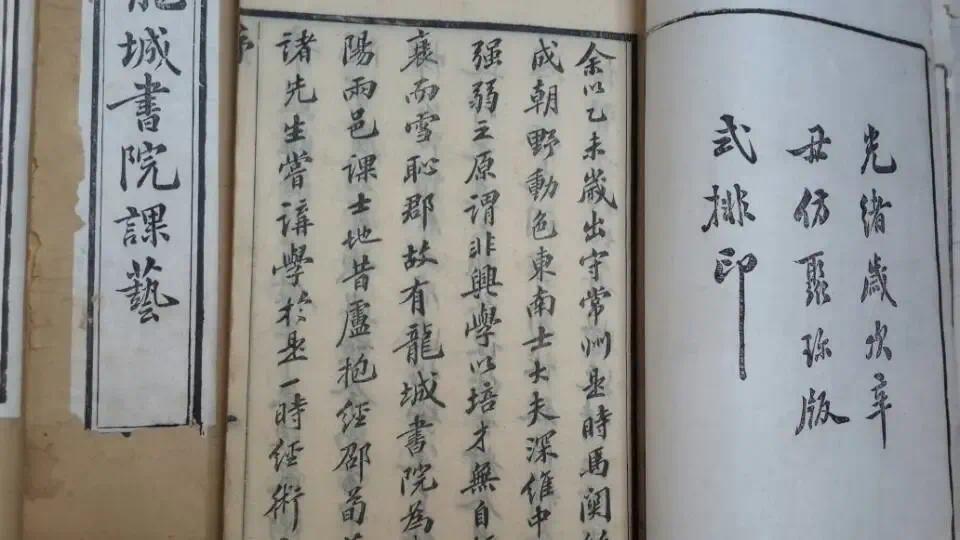 光緒歲次辛
丑仿聚珍版
式排印
余以乙未歲出守常州是時馬関
成朝野動色東南士大夫深維中
强弱之原謂非興學以培才無自
襄而雪恥郡故有龍城書院為
陽兩邑課士地昔盧抱經邵荀
諸先生嘗講學於是一時經術
序
龍城書院課藝